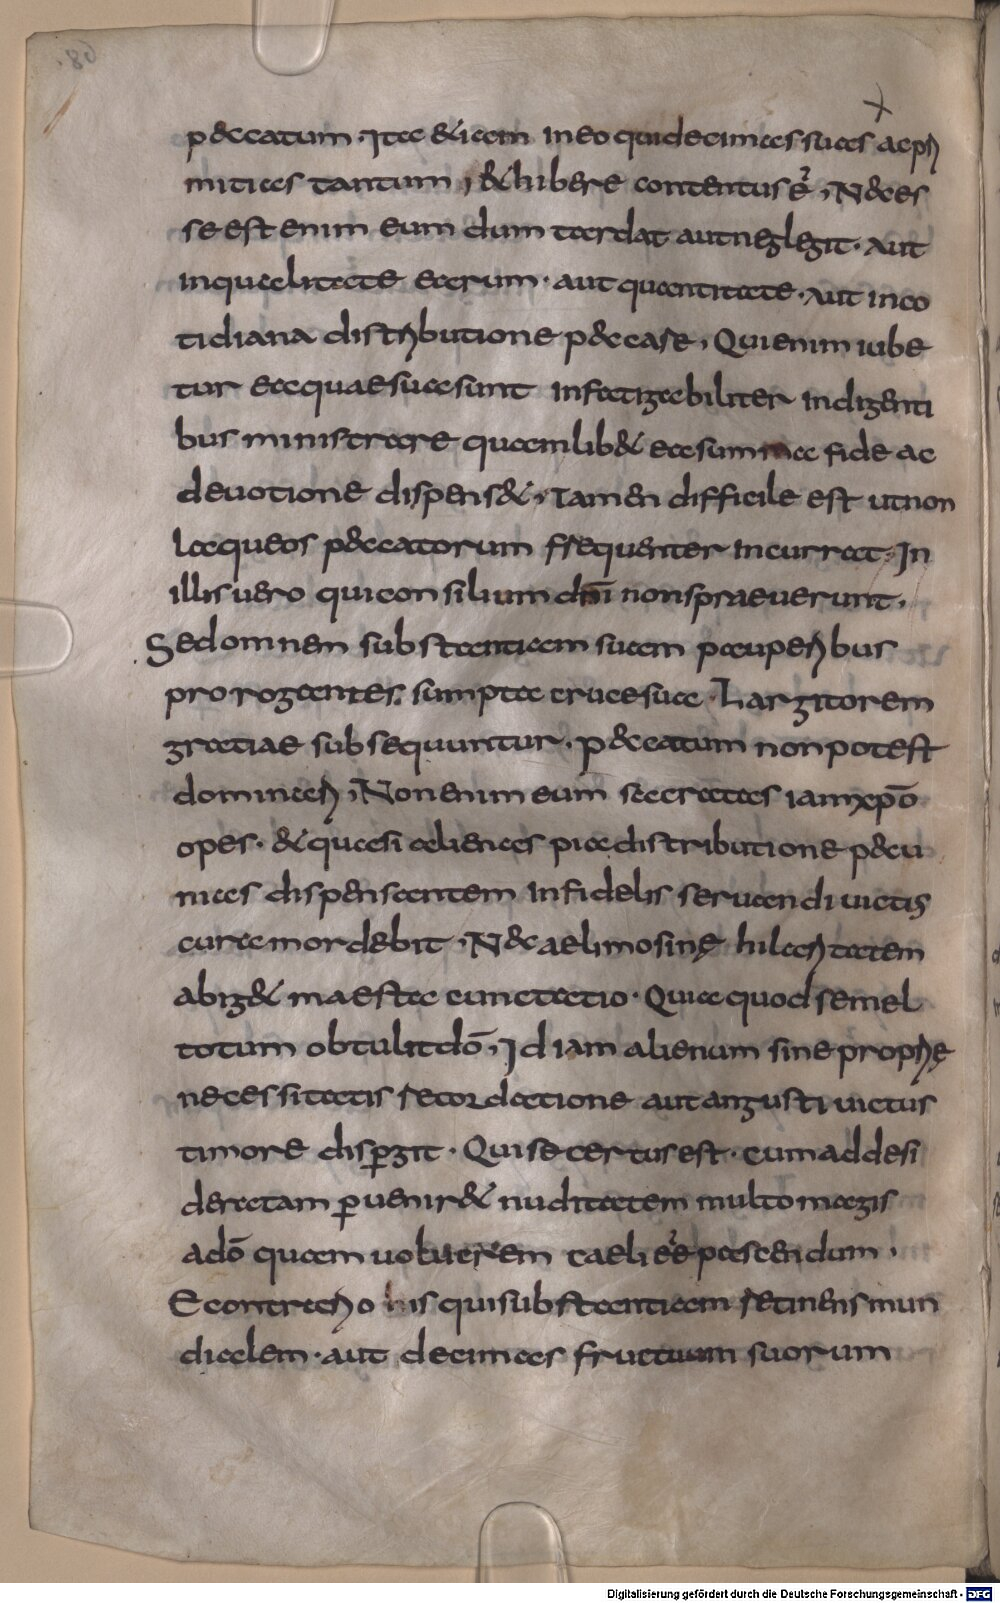 peccatum. Ita etiam in eo qui decimas suas ac pri
mitias tantum, et hibere contentus e᷒, Neces
se est enim eum dum tardat aut neglegit. aut
in qualitate earum. aut quantitate. aut in co
tidiana distributione peccare, Qui enim iube
tur ea quae sua sunt infatigabiliter indigenti
bus ministrare quamlibet ea summa fide ac
deuotione dispenset, Tamen difficile est ut non
laqueos peccatorum frequenter incurrat. In
illis uero qui consilium dn̄i non spraeuerunt.
Sed omnem substantiam suam pauperibus
prorogantes. sumpta cruce sua. Largitorem
gratiae subsequuntur. peccatum non potest
dominari, Non enim eum sacratas iam xp̄o
opes. et quasi alienas pia distributione pecu
nias dispensantem infidelis seruandi uictus
cura mordebit, Nec aelimosinę hilaritatem
abiget maesta cunctatio. Quia quod semel
totum obtulit dō, Id iam alienum sine proprię
necessitatis recordatione aut angusti uictus
timore disp̱git. Qui se certus est. cum ad desi
deratam p̱ueniret nuditatem multo magis
a dō quam uolucrem caeli e᷒e pascendum,
E contrario his qui substantiam retinens mun
dialem. aut decimas fructuum suorum
Digitalisierung gefördert durch die Deutsche Forschungsgemeinschaft - DFG